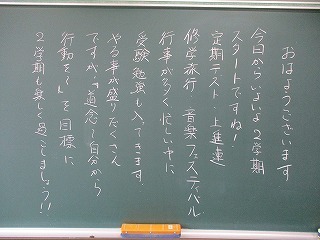 おはようございます
今日からいよいよ2学期
スタートですね!
定期テスト 上進連
修学旅行 音楽フェスティバル
行事が多く忙しい中に
受験勉強も入ってきます。
やる事が盛りだくさん
ですが、「道念〜自分から
行動を〜」を目標に
2学期も楽しく過ごしましょう!!